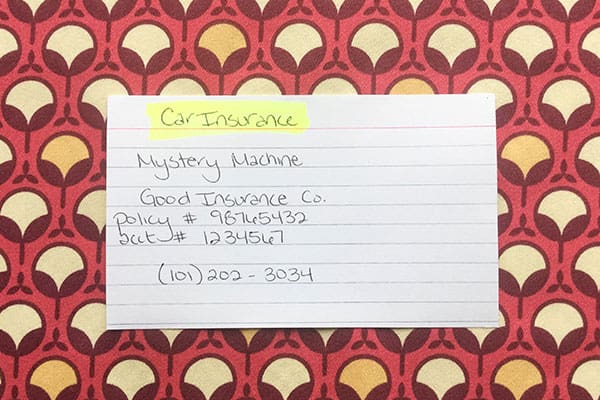 Car Insurance
Mystery Machine
Good Insurance Co.
policy # 98765432
acct # 1234567
(101) 202 - 3034